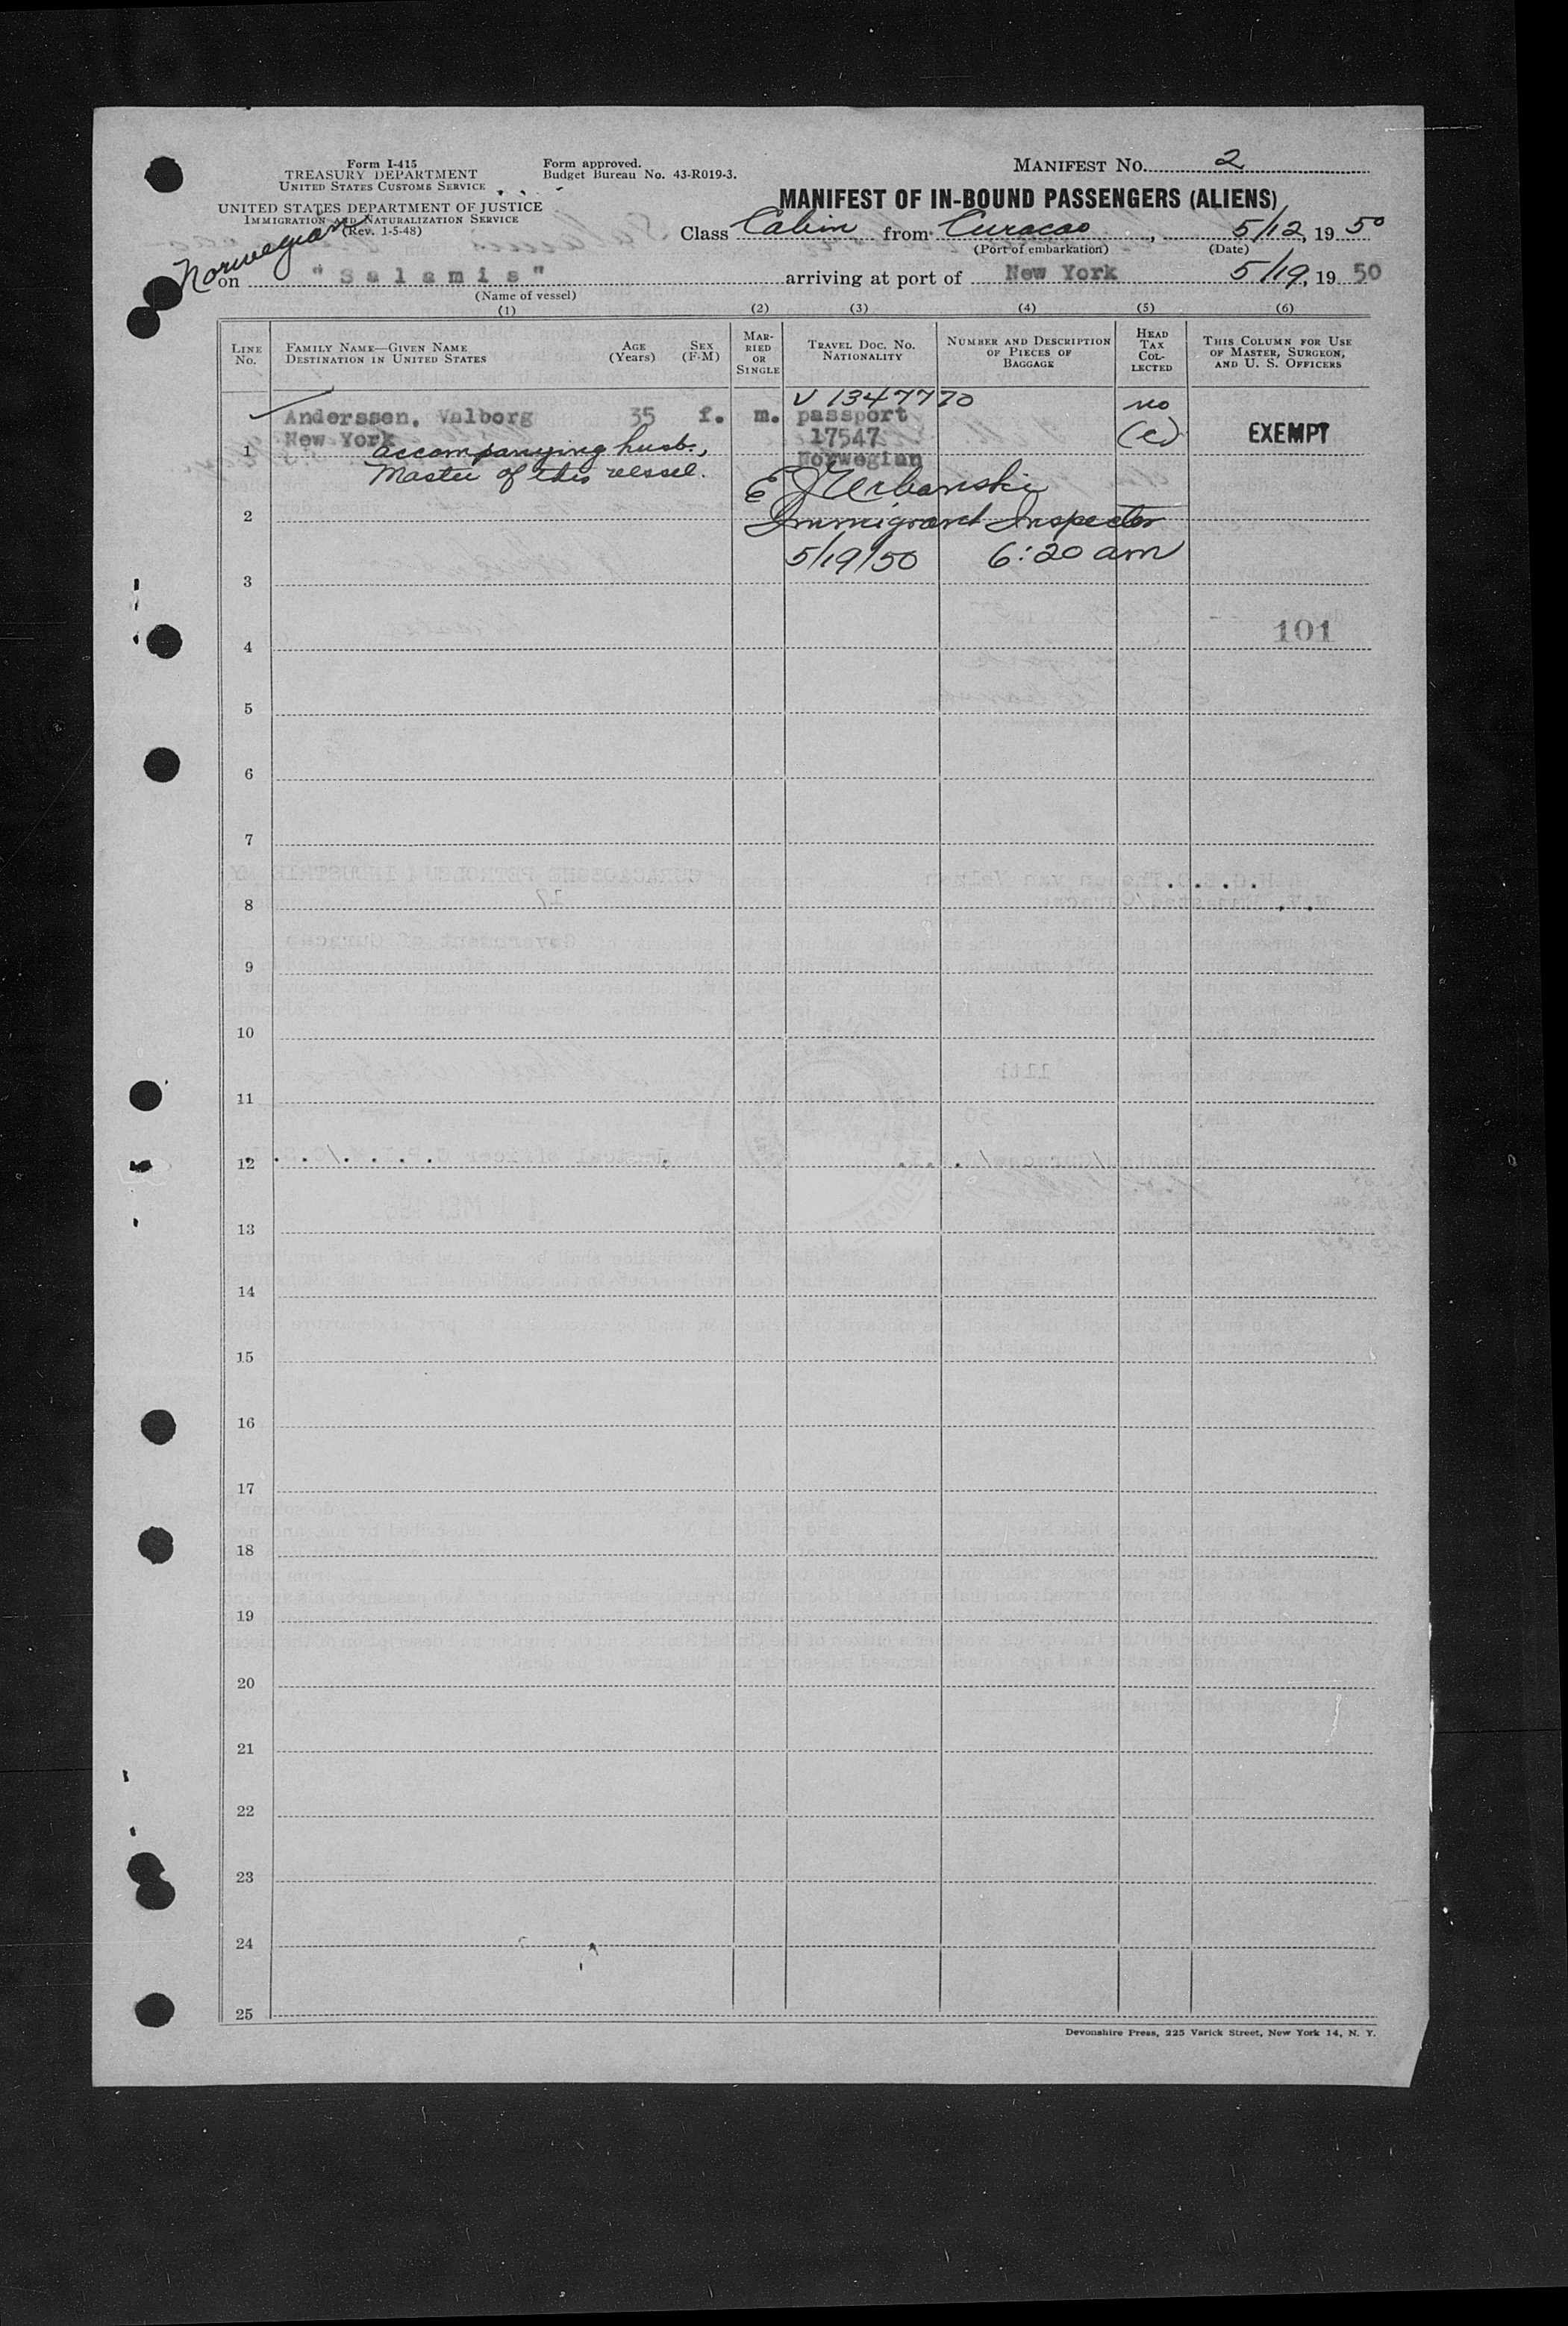 Form I-415
TREASURY DEPARTMENT
UNITED STATES CUSTOMS SERVICE
UNITED STATES DEPARTMENT OF JUSTICE
IMMIGRATION AND NATURALIZATION SERVICE
(Rev. 1-5-48)
Form approved.
Budget Bureau No. 43-R019-3.
MANIFEST NO. 2
MANIFEST OF IN-BOUND PASSENGERS (ALIENS)
Class Cabin from Curacao, 5/12, 19 50
(Port of embarkation) (Date)
Norwegian
on "Salamis" arriving at port of New York 5/19, 19 50
(Name of vessel)
(1) (2) (3) (4) (5) (6)
LINE NO.
FAMILY NAME—GIVEN NAME
DESTINATION IN UNITED STATES
AGE (Years)
SEX (F-M)
MARRIED OR SINGLE
TRAVEL DOC. NO.
NATIONALITY
NUMBER AND DESCRIPTION
OF PIECES OF
BAGGAGE
HEAD TAX COLLECTED
THIS COLUMN FOR USE
OF MASTER, SURGEON,
AND U. S. OFFICERS
V 1347770
Anderssen, Valborg 35 f. m. passport no
1 New York 17547 (e) EXEMPT
accompanying husb., Norwegian
Master of this vessel.
E J Urbanski
2 Immigrant Inspector
5/19/50 6:20 am
3
101
4
5
6
7
8
9
10
11
12
13
14
15
16
17
18
19
20
21
22
23
24
25
Devonshire Press, 225 Varick Street, New York 14, N. Y.